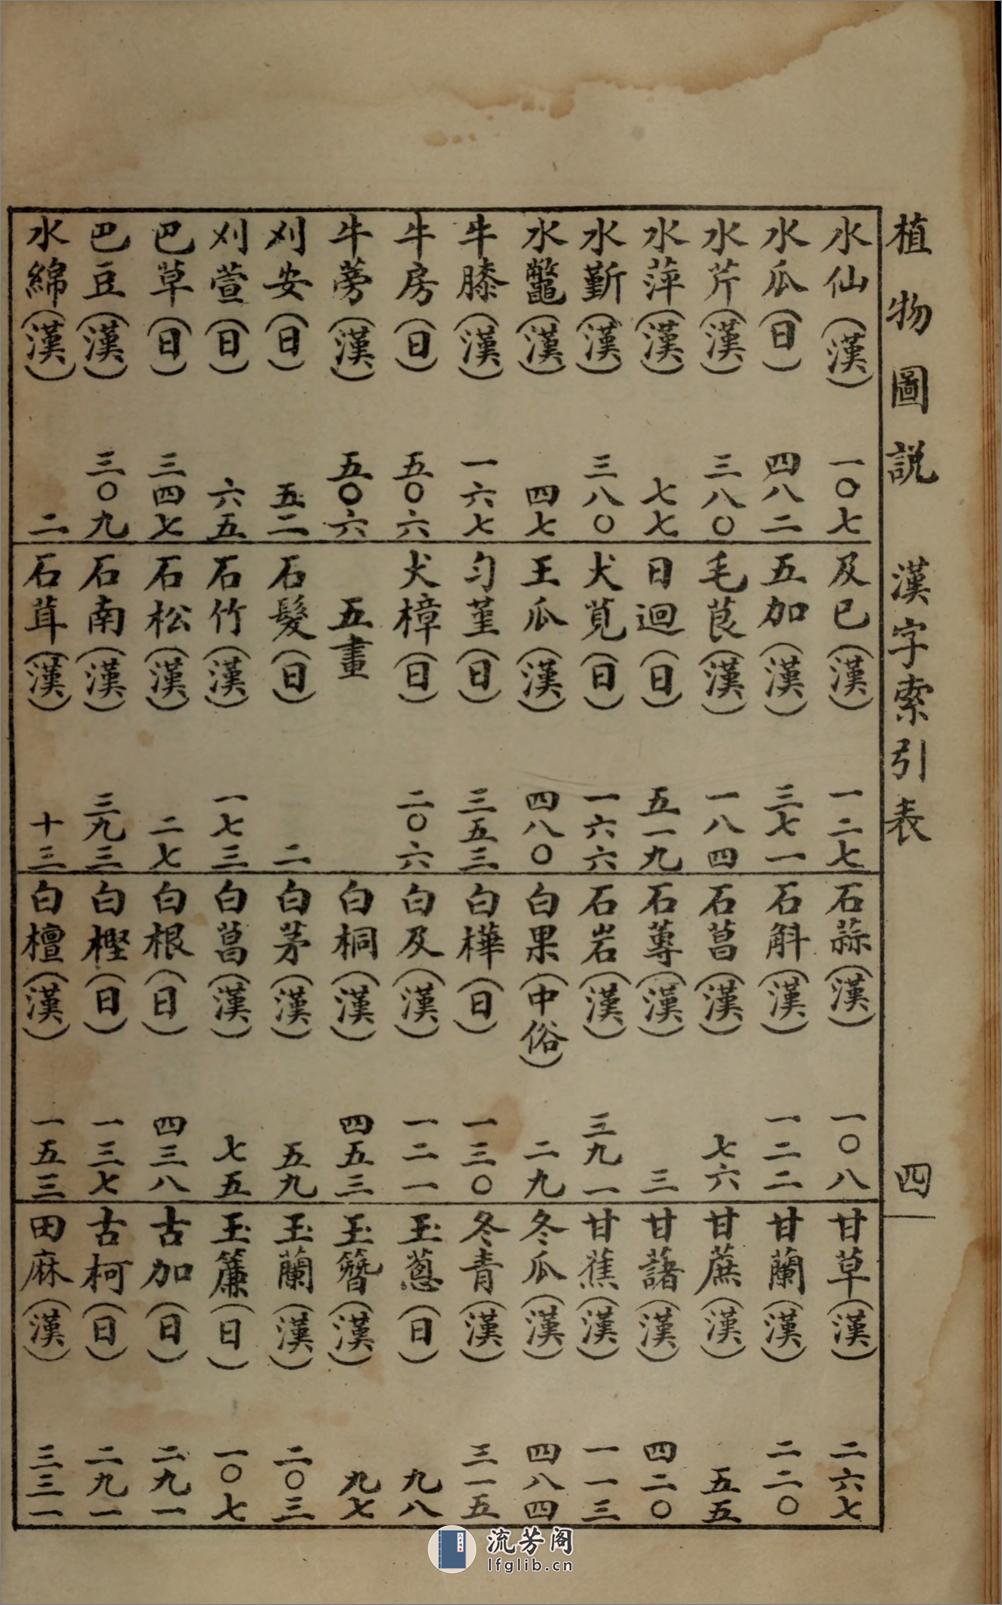 植物圖説 漢字索引表 四
水仙(漢) 一〇七
水瓜(日) 四八二
水芹(漢) 三八〇
水萍(漢) 七七
水斳(漢) 三八〇
水鼈(漢) 四七
牛膝(漢) 一六七
牛房(日) 五〇六
牛蒡(漢) 五〇六
刈安(日) 五二
刈萱(日) 六五
巴草(日) 三四七
巴豆(漢) 三〇九
水綿(漢) 二
及已(漢) 一二七
五加(漢) 三七一
毛茛(漢) 一八四
日迴(日) 五一九
犬莧(日) 一六六
王瓜(漢) 四八〇
匀堇(日) 三五三
犬樟(日) 二〇六
五畫
石髮(日) 二
石竹(漢) 一七三
石松(漢) 二七
石南(漢) 三九三
石茸(漢) 十三
石蒜(漢) 一〇八
石斛(漢) 一二二
石菖(漢) 七六
石蓴(漢) 三
石岩(漢) 三九一
白果(中俗) 二九
白樺(日) 一三〇
白及(漢) 一二一
白桐(漢) 四五三
白茅(漢) 五九
白菖(漢) 七五
白根(日) 四三八
白樫(日) 一三七
白檀(漢) 一五三
甘草(漢) 二六七
甘蘭(漢) 二二〇
甘蔗(漢) 五五
甘藷(漢) 四二〇
甘蕉(漢) 一一三
冬瓜(漢) 四八四
冬青(漢) 三一五
玉蔥(日) 九八
玉簪(漢) 九七
玉蘭(漢) 二〇三
玉簾(日) 一〇七
古加(日) 二九一
古柯(日) 二九一
田麻(漢) 三三一
流芳阁
lfglib.cn